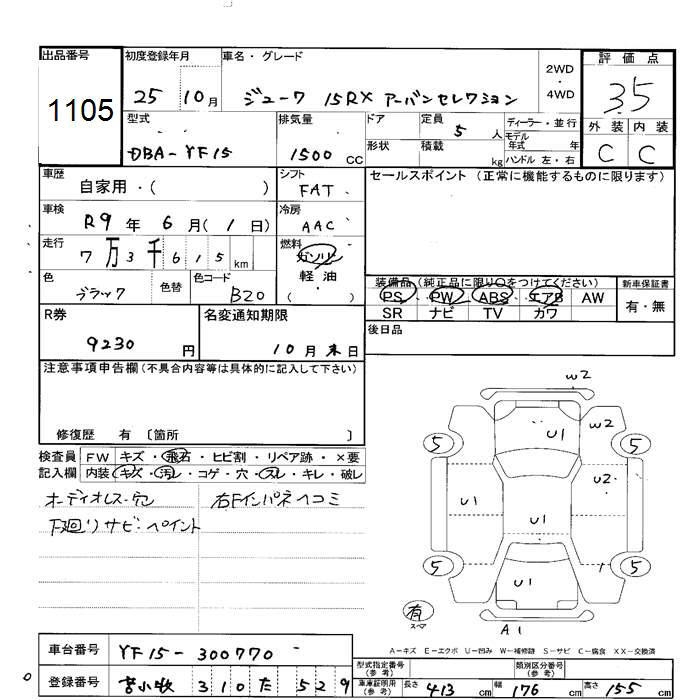 出品番号 初度登録年月 車名・グレード 2WD・4WD 評価点
1105 25 10月 ジューク 15RX アーバンセレクション 3.5
型式 排気量 ドア 定員 5人 ディーラー・並行 外装 内装
DBA-YF15 1500cc 形状 積載 kg モデル年式 年 ハンドル 左・右 C C
車歴 自家用・( ) シフト FAT セールスポイント (正常に機能するものに限ります)
車検 R9年 6月(1日) 冷房 AAC
走行 7万3千615km 燃料 ガソリン
軽油
( )
色 ブラック 色替 色コード B20 装備品 (純正品に限り○をつけてください) 新車保証書
PS PW ABS エアB AW 有・無
SR ナビ TV カワ
R券 9230円 名変通知期限 10月末日 後日品
注意事項申告欄 (不具合内容等は具体的に記入して下さい)
修復歴 有 〔箇所 〕
検査員 FW キズ・飛石・ヒビ割・リペア跡・×要
記入欄 内装 キズ・汚レ・コゲ・穴・スレ・キレ・破レ
オーディオレス・穴 右Fインパネヘコミ
下廻りサビ・ペイント
W2
5 U1 W2 5
U1 U1 U2
5 U1 5
有
スペア
A1
A-キズ E-エクボ U-凹み W-補修跡 S-サビ C-腐食 XX-交換済
車台番号 YF15-300770 型式指定番号(参考) 類別区分番号(参考)
登録番号 苫小牧 310 た 529 車庫証明用(参考) 長さ 413cm 幅 176cm 高さ 155cm